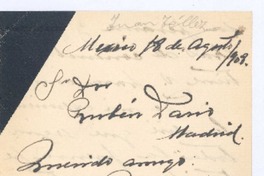 Juan Téllez
Mexico 18 de Agosto/
909.
Sr Don
Rubén Dario
Madrid.
Querido amigo.